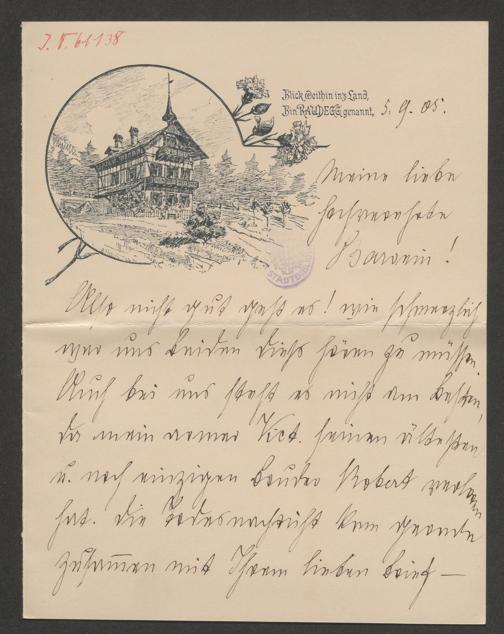 J. N. 61138
Blick weithin in's Land,
Bin RAUDEGG genannt, 5. 9. 05.
Meine liebe
hochverehrte
Baronin!
Also nicht gut geht es! wie schmerzlich
war uns beiden dieß hören zu müssen.
Auch bei uns steht es nicht am besten,
da mein armer Vict. seinen ältesten
u. noch einzigen Bruder Robert verloren
hat. Die Todesnachricht kam gerade
zusammen mit Ihrem lieben Brief —